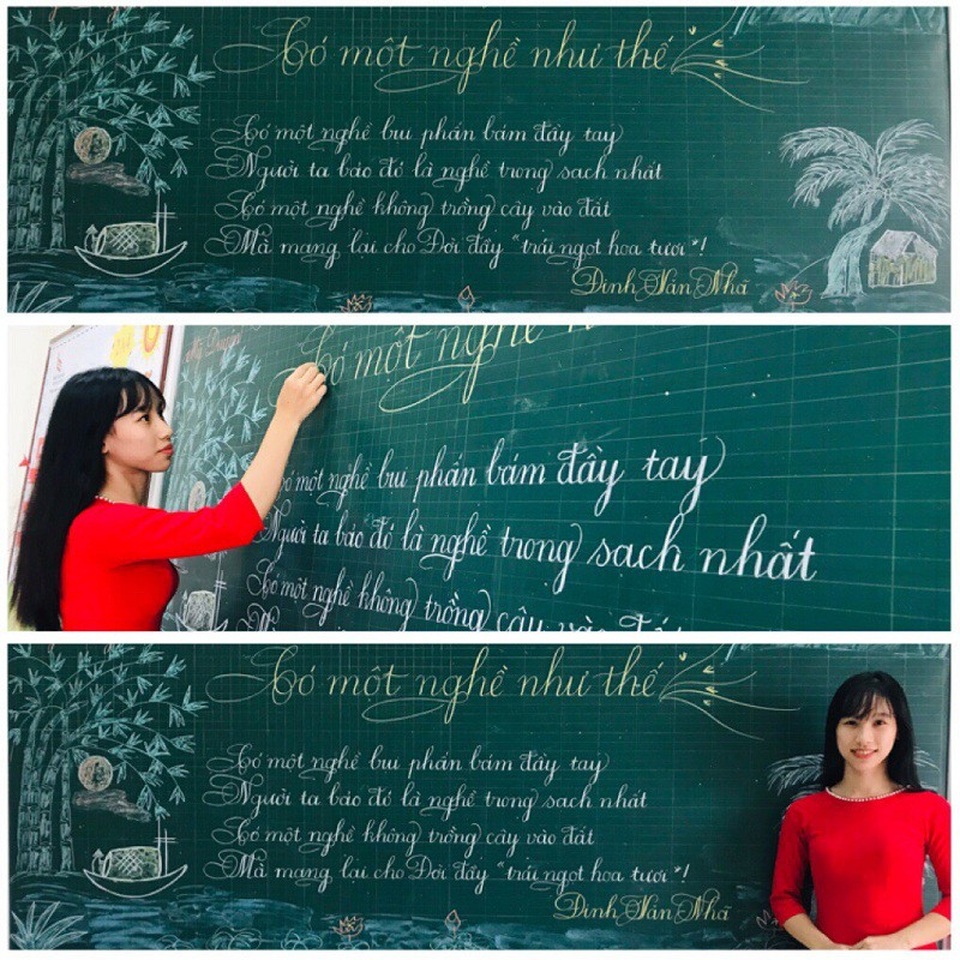 Có một nghề như thế
Có một nghề bụi phấn bám đầy tay
Người ta bảo đó là nghề trong sạch nhất
Có một nghề không trồng cây vào đất
Mà mang lại cho Đời đầy "trái ngọt hoa tươi"!
Đinh Văn Nhã
Có một nghề n
Có một nghề bụi phấn bám đầy tay
Người ta bảo đó là nghề trong sạch nhất
Có một nghề không trồng cây vào đất
Có một nghề như thế
Có một nghề bụi phấn bám đầy tay
Người ta bảo đó là nghề trong sạch nhất
Có một nghề không trồng cây vào đất
Mà mang lại cho Đời đầy "trái ngọt hoa tươi"!
Đinh Văn Nhã